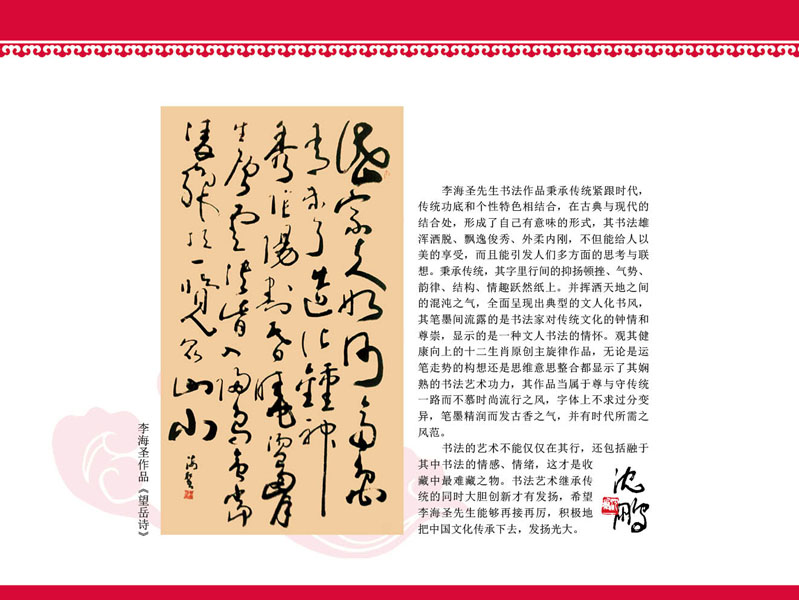 岱宗夫如何齊魯
青未了造化鍾神
秀陰陽割昏曉盪胸
生層雲決眥入歸鳥會當
凌絕頂一覽眾山小
海圣
李海圣作品《望岳诗》
李海圣先生书法作品秉承传统紧跟时代，
传统功底和个性特色相结合，在古典与现代的
结合处，形成了自己有意味的形式，其书法雄
浑洒脱、飘逸俊秀、外柔内刚，不但能给人以
美的享受，而且能引发人们多方面的思考与联
想。秉承传统，其字里行间的抑扬顿挫、气势、
韵律、结构、情趣跃然纸上。并挥洒天地之间
的混沌之气，全面呈现出典型的文人化书风，
其笔墨间流露的是书法家对传统文化的钟情和
尊崇，显示的是一种文人书法的情怀。观其健
康向上的十二生肖原创主旋律作品，无论是运
笔走势的构想还是思维意思整合都显示了其娴
熟的书法艺术功力，其作品当属于尊与守传统
一路而不慕时尚流行之风，字体上不求过分变
异，笔墨精润而发古香之气，并有时代所需之
风范。
书法的艺术不能仅仅在其行，还包括融于
其中书法的情感、情绪，这才是收
藏中最难藏之物。书法艺术继承传
统的同时大胆创新才有发扬，希望
李海圣先生能够再接再厉，积极地
把中国文化传承下去，发扬光大。
沈鹏